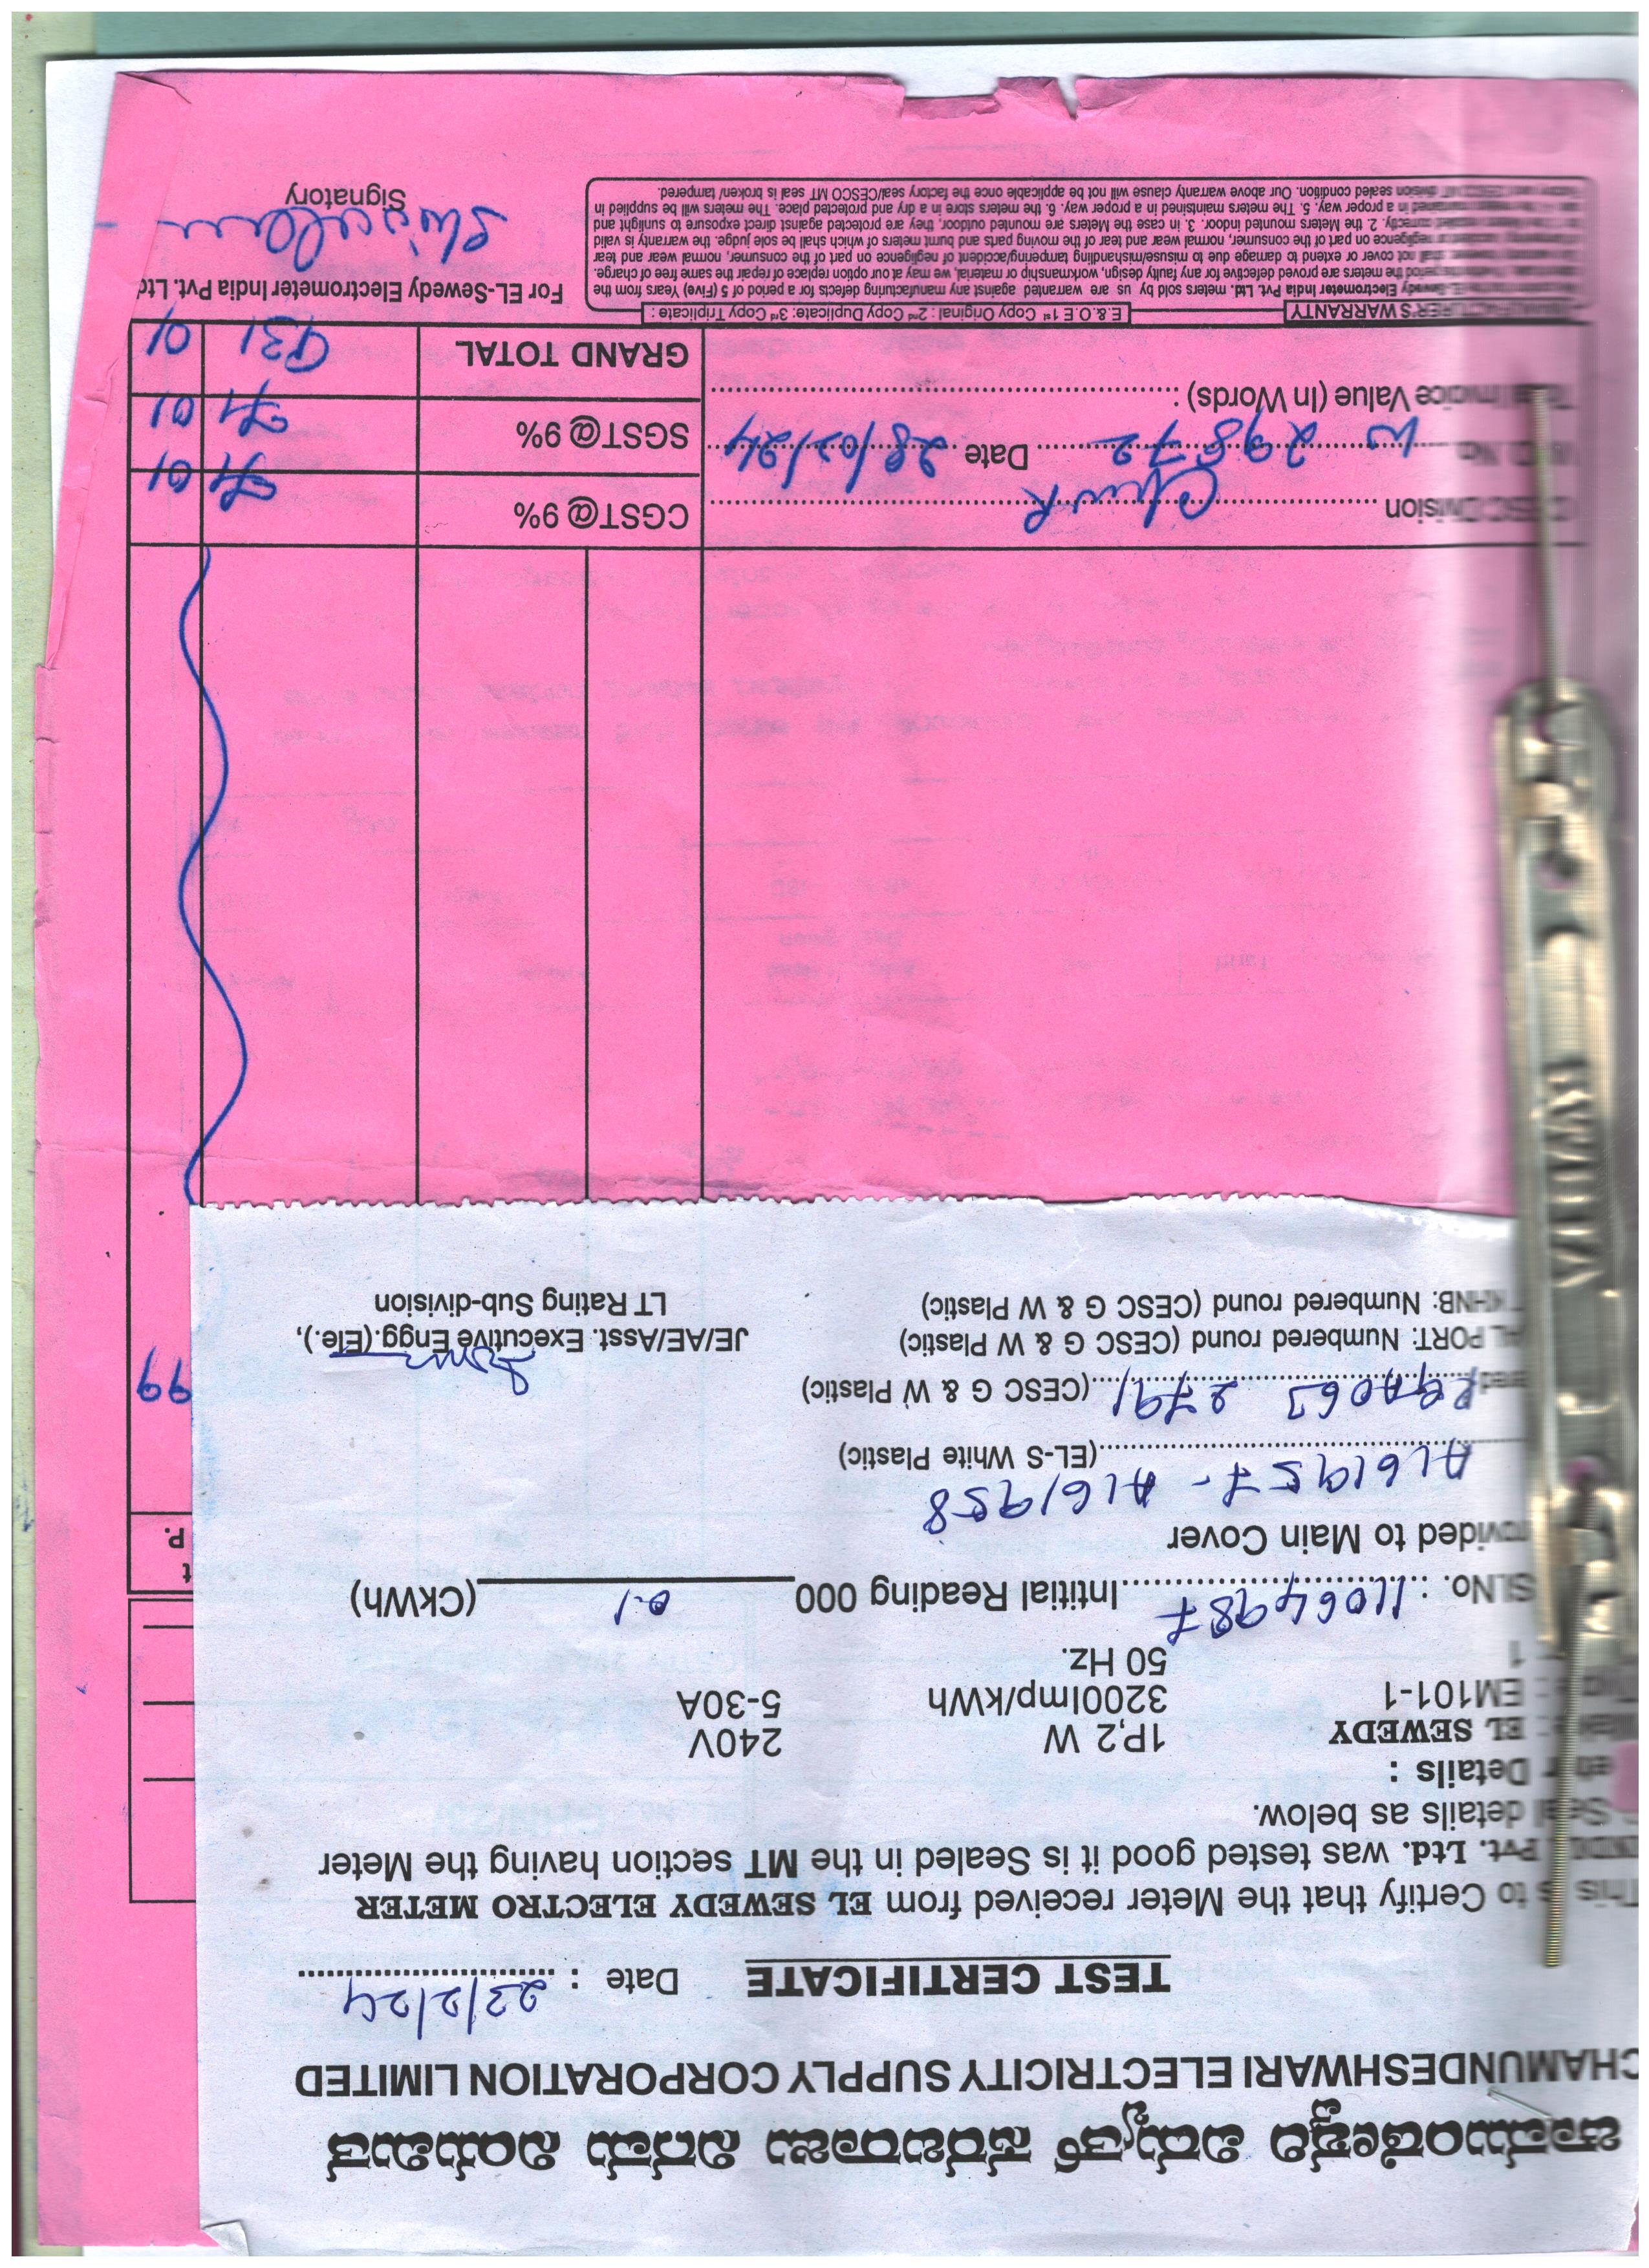 ಚಾಮುಂಡೇಶ್ವರಿ ವಿದ್ಯುತ್ ಸರಬರಾಜು ನಿಗಮ ನಿಯಮಿತ
CHAMUNDESHWARI ELECTRICITY SUPPLY CORPORATION LIMITED
TEST CERTIFICATE Date : 22/2/24
This is to Certify that the Meter received from EL SEWEDY ELECTRO METER
Pvt. Ltd. was tested good it is Sealed in the MT section having the Meter
Seal details as below.
Details :
EL SEWEDY 1P,2 W 240V
EM101-1 3200Imp/kWh 5-30A
1 50 Hz.
Sl.No. : 11064987 Intitial Reading 000 0.1 (CkWh)
ovided to Main Cover
AL61957 - AL61958 (EL-S White Plastic)
2791 (CESC G & W Plastic)
AL PORT: Numbered round (CESC G & W Plastic)
TKHNB: Numbered round (CESC G & W Plastic)
JE/AE/Asst. Executive Engg.(Ele.),
LT Rating Sub-division
t
P.
99
CESC Division
CGST@ 9% 71 01
No. 29872 Date 28/02/24
SGST@ 9% 71 01
Total Invoice Value (In Words) :
GRAND TOTAL 931 01
MANUFACTURER'S WARRANTY E.& O.E 1st Copy Original : 2nd Copy Duplicate: 3rd Copy Triplicate :
For EL-Sewedy Electrometer India Pvt. Ltd
EL-Sewedy Electrometer India Pvt. Ltd. meters sold by us are warranted against any manufacturing defects for a period of 5 (Five) Years from the
period the meters are proved defective for any faulty design, workmanship or material, we may at our option replace of repair the same free of charge.
shall not cover or extend to damage due to misuse/mishandling tampering/accident of negligence on part of the consumer, normal wear and tear
negligence on part of the consumer, normal wear and tear of the moving parts and burnt meters of which shall be sole judge. the warranty is valid
correctly. 2. the Meters mounted indoor. 3. in case the Meters are mounted outdoor, they are protected against direct exposure to sunlight and
in a proper way. 5. The meters maintsined in a proper way. 6. the meters store in a dry and protected place. The meters will be supplied in
division sealed condition. Our above warranty clause will not be applicable once the factory seal/CESCO MT seal is broken/ tampered.
Signatory